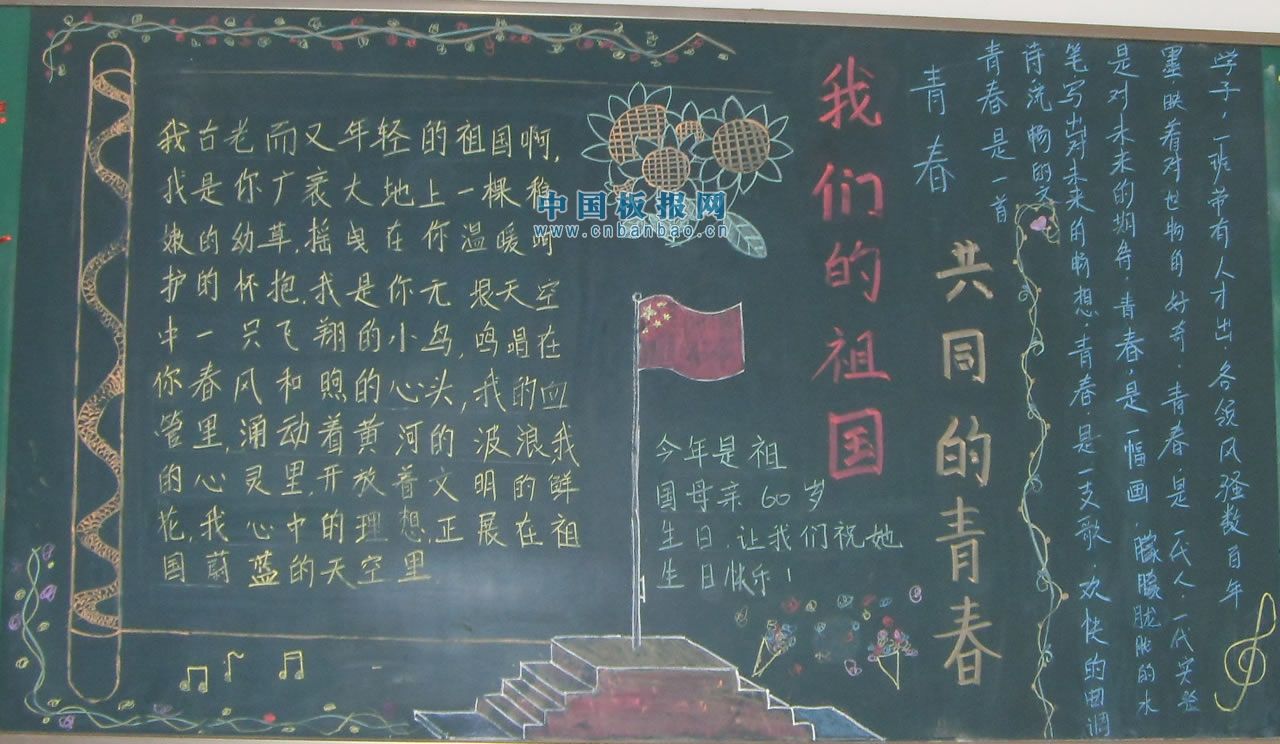 我古老而又年轻的祖国啊,
我是你广袤大地上一棵稚
嫩的幼草,摇曳在你温暖呵
护的怀抱,我是你无垠天空
中一只飞翔的小鸟,鸣唱在
你春风和煦的心头,我的血
管里,涌动着黄河的波浪我
的心灵里,开放着文明的鲜
花,我心中的理想,正展在祖
国蔚蓝的天空里
中国板报网
www.cnbanbao.cn
今年是祖
国母亲60岁
生日,让我们祝她
生日快乐!
我们的祖国
共同的青春
青春
青春是一首
诗流畅的文
笔写出对未来的畅想,青春是一支歌,欢快的曲调
是对未来的期待,青春是一幅画,朦朦胧胧的水
墨映着对世物的好奇,青春是一代人,一代实验
学子,一班带有人才出各领风骚数百年